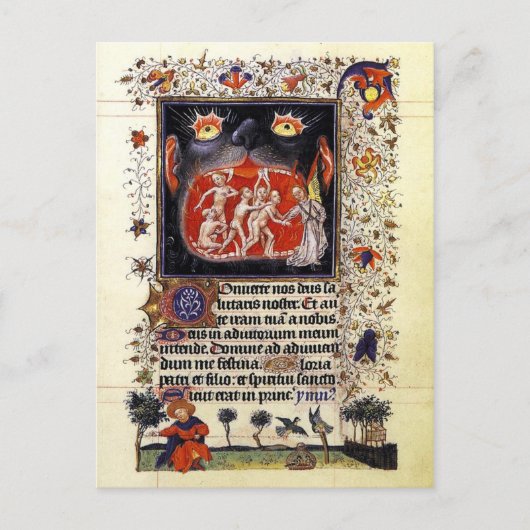 Onuerte nos deus sa
lutaris noster. Et auer
te iram tuã a nobis.
Deus in adiutorium meum
intende. Domine ad adiuuan
dum me festina. Gloria
patri et filio: et spiritui sancto
Sicut erat in princ. ymn9